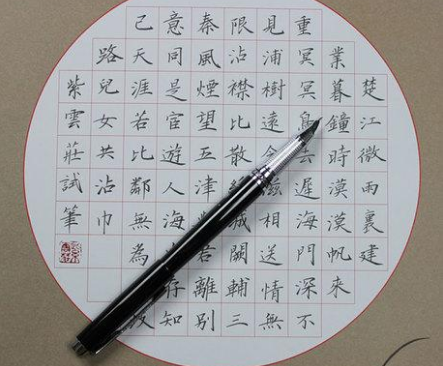 楚江微雨裏建
業暮鐘時漠漠帆來
重冥冥鳥去遲海門深不
見浦樹遠含滋相送情無
限沾襟比散絲城闕輔三
秦風煙望五津與君離別
意同是宦遊人海存知
己天涯若比鄰無為歧
路兒女共沾巾
紫雲莊試筆